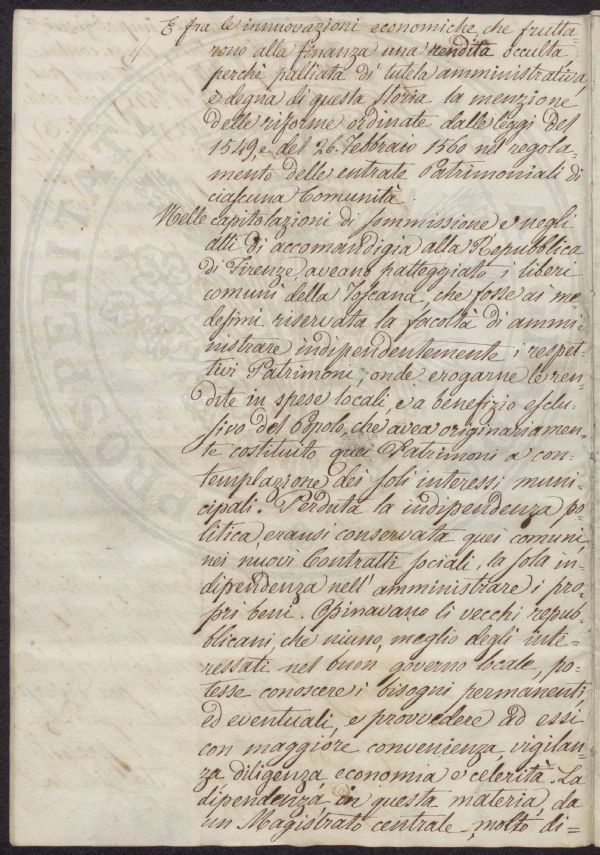 E fra le innuovazioni economiche, che frutta-
rono alla finanza una rendita occulta
perchè palliata di tutela amministrativa,
è degna di questa storia la menzione
delle riforme ordinate dalle leggi del
1549, e del 26. Febbraio 1560 nel regola-
mento delle entrate Patrimoniali di
ciascuna Comunità.
Nelle capitolazioni di sommissione e negli
atti di accomandigia alla Repubblica
di Firenze aveano patteggiato i liberi
comuni della Toscana, che fosse ai me-
desimi riservata la facoltà di ammi-
nistrare indipendentemente i respet-
tivi Patrimoni, onde erogarne le ren-
dite in spese locali, e a benefizio esclu-
sivo del Popolo, che avea originariamen-
te costituito quei Patrimoni a con-
templazione dei soli interessi muni-
cipali. Perduta la indipendenza po-
litica, eransi conservata quei comuni,
nei nuovi Contratti sociali, la sola in-
dipendenza nell' amministrare i pro-
pri beni. Opinavano li vecchi repub-
blicani, che niuno, meglio degli inte-
restati nel buon governo locale, po-
tesse conoscere i bisogni permanenti,
ed eventuali, e provvedere ad essi
con maggiore convenienza vigilan-
za diligenza economia e celerità. La
dipendenza in questa materia, da
un Magistrato centrale, molto di-
PROSPERITATI